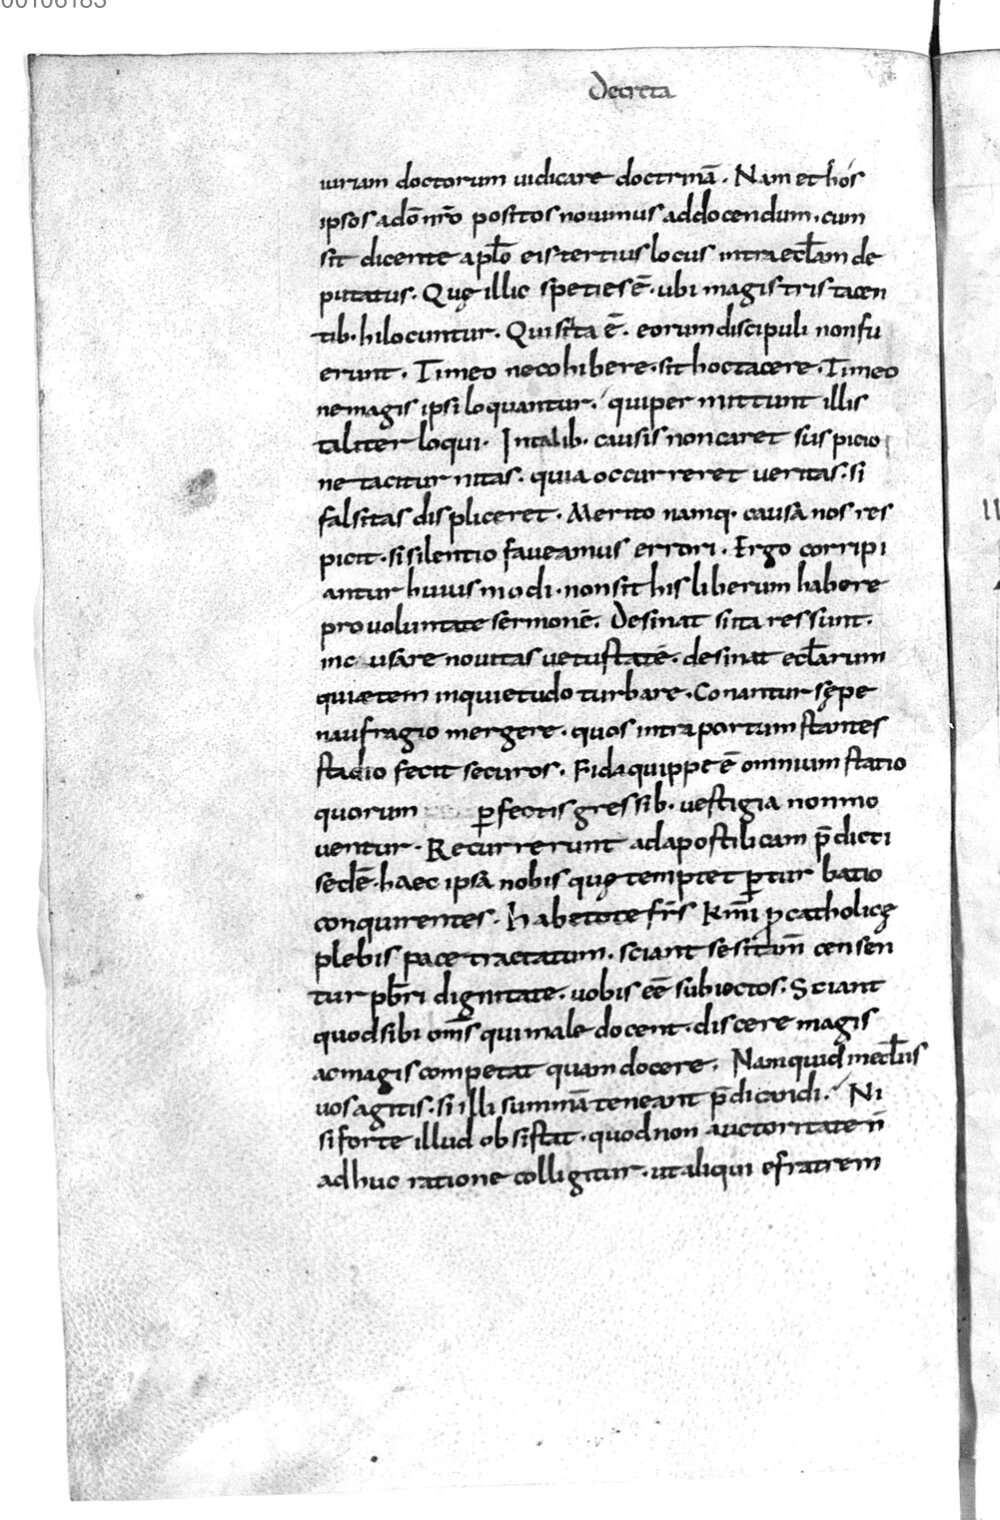 00106183
Decreta
iuriam doctorum uidicare doctrinā. Nam et hos
ipsos a dō nr̄o positos nouimus ad docendum. cum
sit dicente apl̄o eis tertius locus intra eccl̄am de
putatus. Quę illic speties ē. ubi magistris tacen
tib. hi locuntur. Qui si ita ē. eorum discipuli non fu
erunt. Timeo ne cohibere. sit hoc tacere. Timeo
ne magis ipsi loquantur. qui permittunt illis
taliter loqui. In talib. causis non caret suspicio
ne taciturnitas. quia occurreret ueritas. si
falsitas displiceret. Merito namq. causa nos res
picit. si silentio faueamus errori. Ergo corripi
antur huiusmodi. non sit his liberum habere
pro uoluntate sermonē. Desinat si ita res sunt.
inc usare nouitas uetustatē. desinat eccl̄arum
quiætem inquietudo turbare. Conantur sępe
naufragio mergere. quos intra portum stantes
stadio fecit securos. Fida quippe ē omnium statio
quorum perfectis gressib. uestigia non mo
uentur. Recurrerunt ad apostilicam p̄dicti
sedē. haec ipsa nobis quę temptet p̱turbatio
conquirentes. Habetote fr̄s km̄i pro catholicę
plebis pace tractatum. sciant se si tam̄ censen
tur pb̄ri dignitate. uobis eē subiectos. Sciant
quod sibi om̄s qui male docent. discere magis
ac magis competat quam docere. Nam quid in eccl̄iis
uos agitis. si illi summā teneant p̄dicandi. Ni
si forte illud obsistat. quod non auctoritate n̄
adhuc ratione colligitur. ut aliqui e fratrem